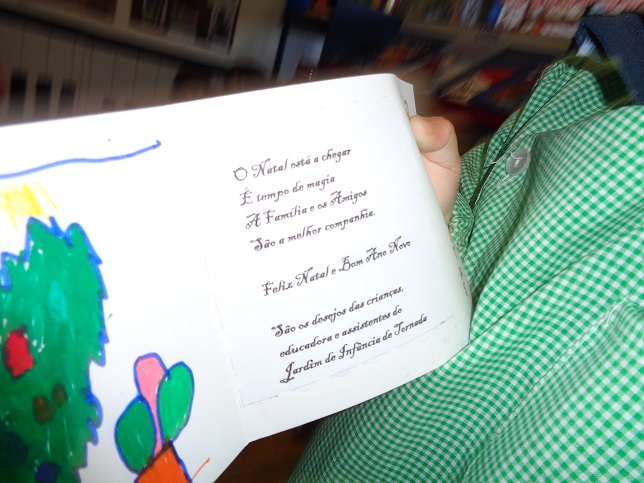 O Natal está a chegar
É tempo de magia
A Família e os Amigos
São a melhor companhia.
Feliz Natal e Bom Ano Novo
São os desejos das crianças,
educadora e assistentes do
Jardim de Infância de Tornada